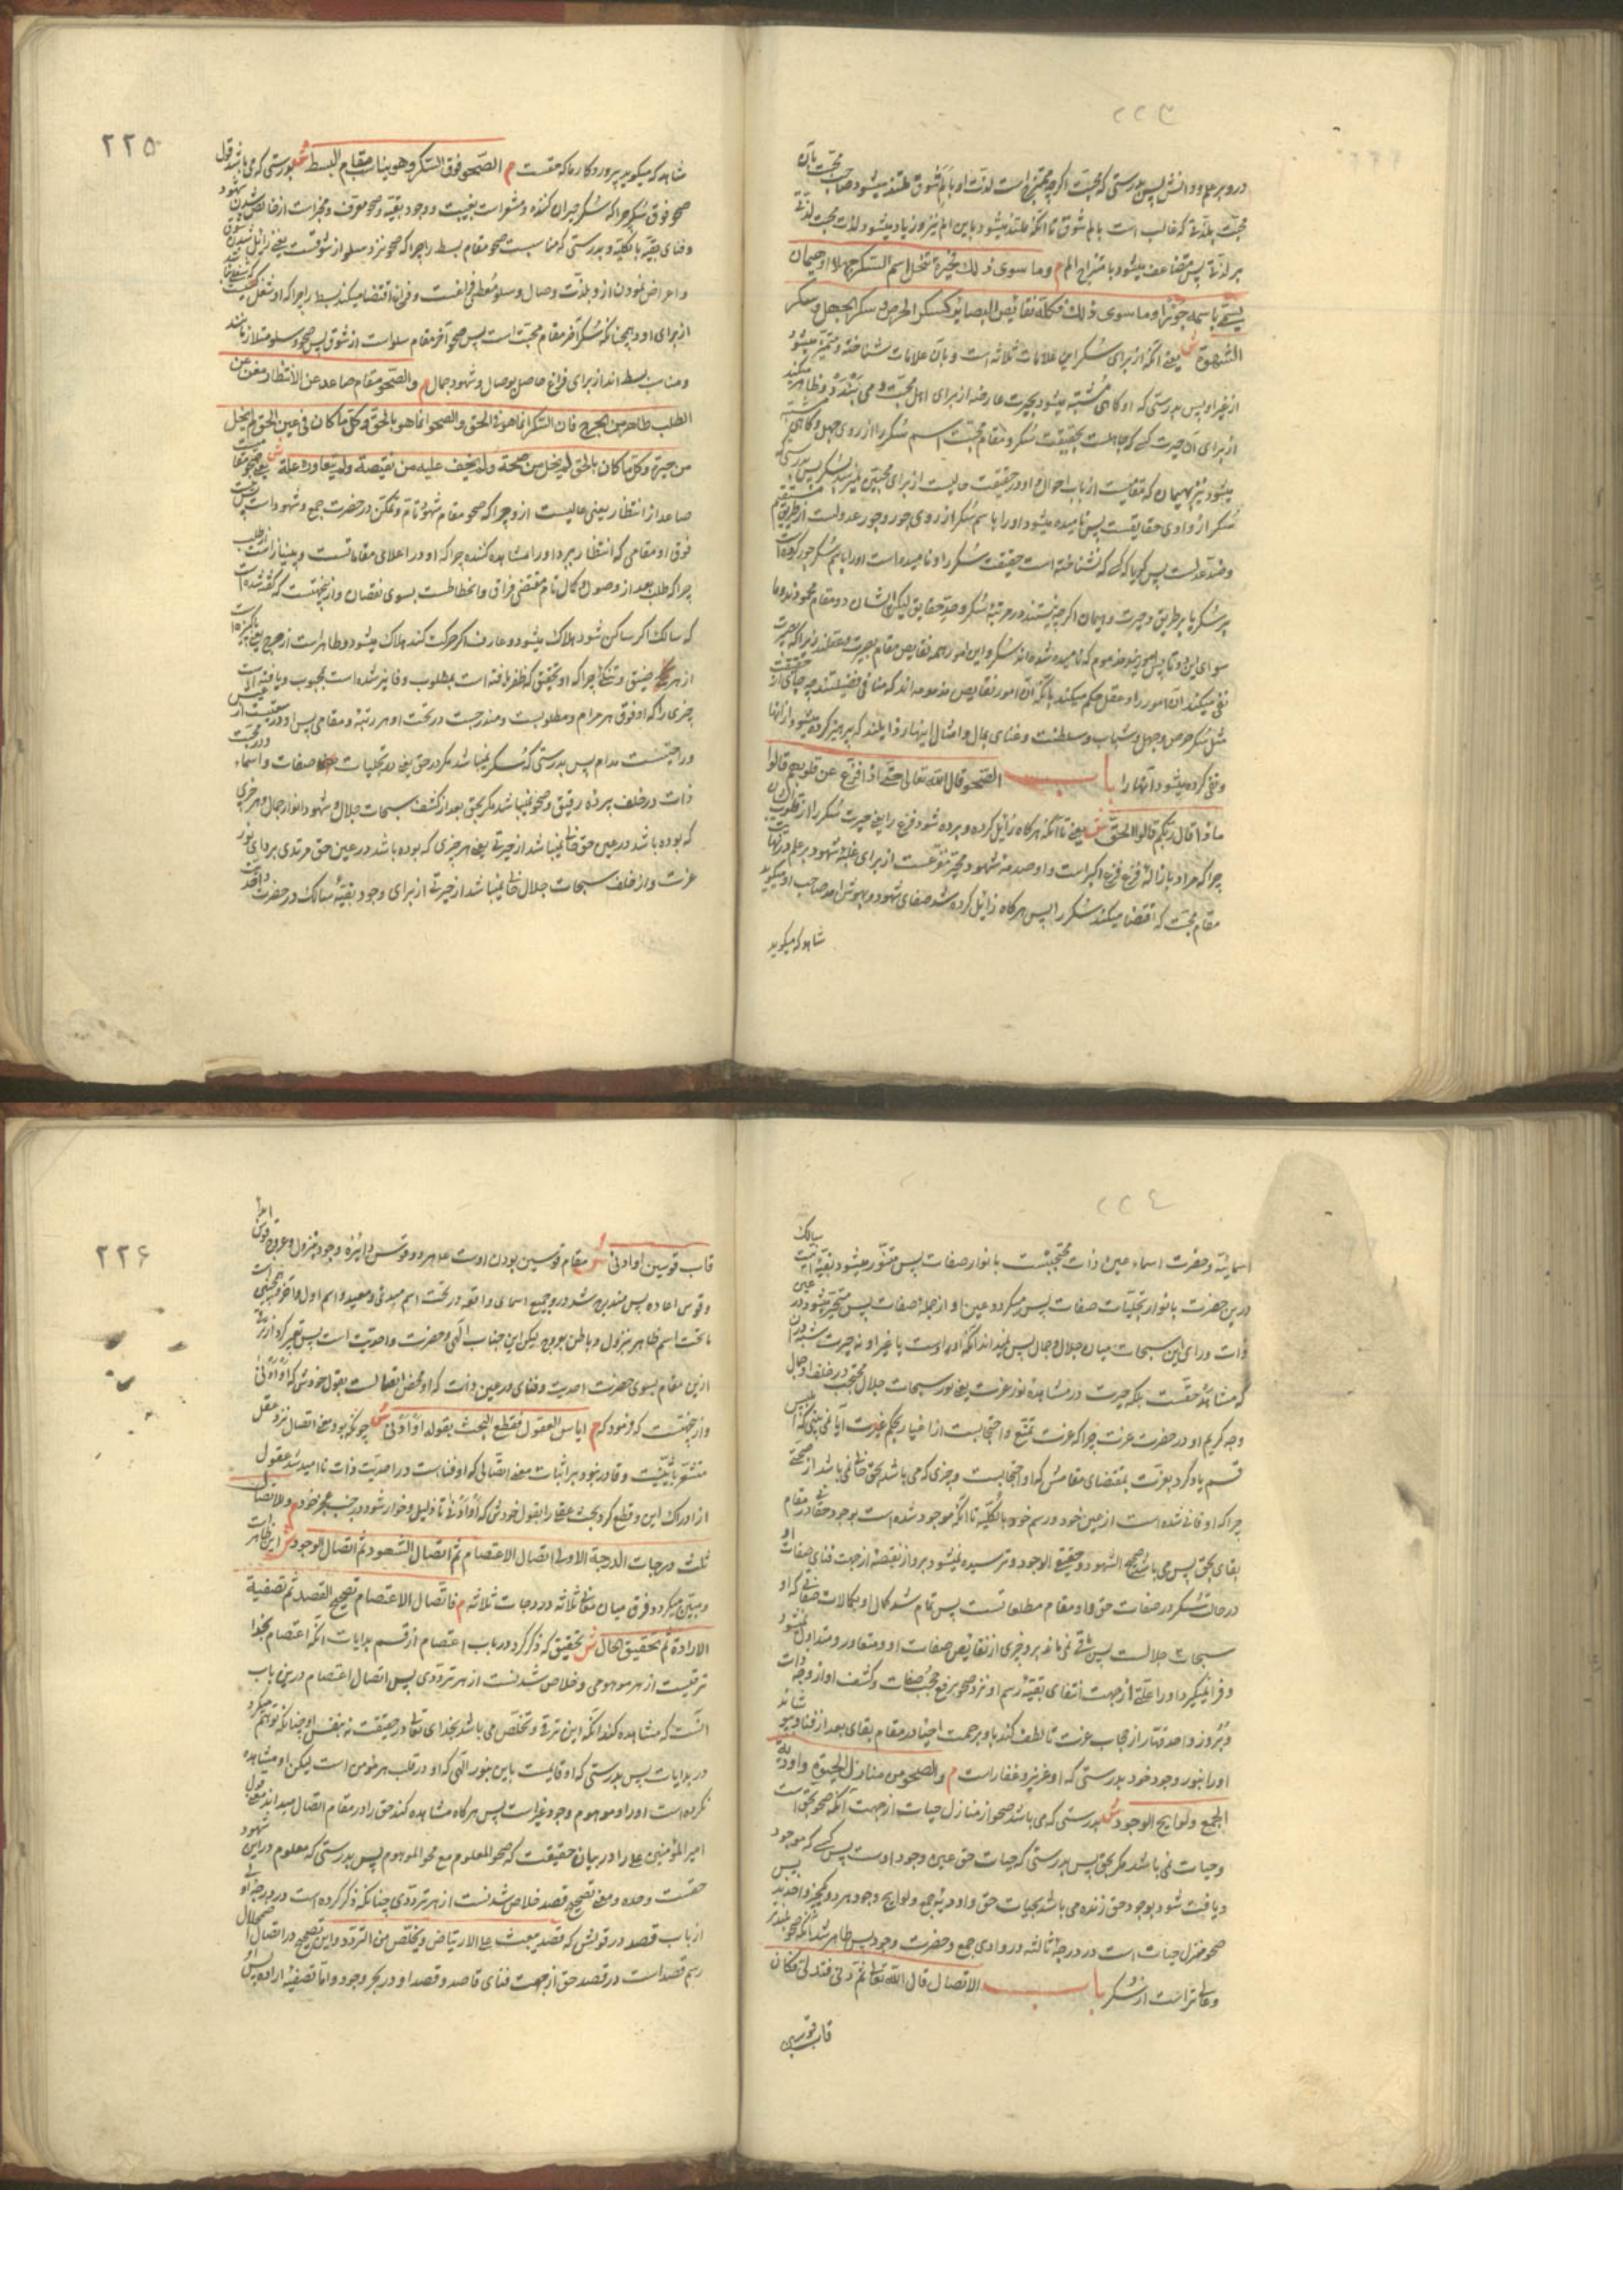 ۲۲۴
در و بر علم و دانش پس بدرستی که محبت اگرچه ممتزج است لذت او بألم شوق ملتذ میشود صاحب محبت بآن
محبت بلذتی که غالب است بالم شوق تا آنکه ملتذ میشود باین الم نیز و زیاد میشود لذت محبت لذتی
بر لذتی پس متضاعف میشود با متزاج الم م وما سوی ذلک فحیرة تنحل اسم السکر جهلا او هیمان
یسمی باسمه جورا وما سوی ذلک فکله نقایص البصائر کسکر الحرص و سکر الجهل و سکر
الشهوة ش یعنی آنکه از برای سکر این علامات ثلاثه است و بآن علامات شناخته و متمیز میشود
از غیر او پس بدرستی که او گاهی مشتبه میشود بحیرت عارضه از برای اهل محبت
از برای آن حیرت کسی که جاهلست بحقیقت سکر و مقام محبت اسم سکر را از روی جهل و گاهی
میشود نیز بهیمان که مقامیست از باب احوال و او در حقیقت
سکر از وادی حقایقست پس نامیده میشود او را باسم سکر از روی جور و جور عدولست از طریق مستقیم
و ضد عدلست پس گویا که کسی که نشناخته است حقیقت سکر را و نامیده است او را باسم سکر جور کرده است
بر سکر یا بر طریق و حیرت و هیمان اگرچه نیستند در مرتبه سکر و حد حقایق لیکن ایشان دو مقام محمودند و ما
سوای این دو
نفی میکند آن امور را و عقل حکم میکند بآنکه آن امور نقایص مذمومه اند که منافی فضیلتند
مثل سکر حرص و جهل و شباب و سلطنت و غنای بمال و امثال اینها رذایلند که پرهیز کرده میشود از آنها
و نفی کرده میشود آنها را باب الصحو قال الله تعالی حتی اذا فزع عن قلوبهم قالوا
ماذا قال ربکم قالوا الحق ش یعنی تا آنکه هرگاه زائل کرده و برده شود فزع را یعنی حیرت سکر را از قلوب
چرا که مراد بازاله فزع فزع اکبر است و او صدمه شهود
مقام محبت که اقتضا میکند سکر را پس هرگاه زائل کرده شد صفای شهود و بهوش آمد صاحب او میگوید
شاهد که میگوید
۲۲۵
شاهد که میگوید پروردگار ما که حقست م الصحو فوق السکر و هو یناسب مقام البسط ش بدرستی که می باشد قول
صحو فوق سکر چرا که سکر حیران کننده و مشعر است بغیبت و وجود بقیه و صحو معرف و مخبر است از خالص شدن شهود
و فنای بقیه بالکلیه و بدرستی که مناسبت صحو مقام بسط را چرا که صحو نزد سلو از شوقست یعنی زائل شدن شوق
و اعراض نمودن از و بلذت وصال و سلو معطی فراغست و فراغ اقتضا میکند بسط را چرا که او شغل
از برای او و همچنانکه سکر آخر مقام محبت است پس صحو آخر مقام سلو است از شوق پس صحو و سلو متلازمانند
و مناسب بسط اند از برای فراغ حاصل بوصال و شهود جمال م و الصحو مقام صاعد عن الانتظار مغن عن
الطلب طاهر من الحرج فان السکر انما هو فی الحق و الصحو انما هو بالحق و کل ما کان فی عین الحق لم یخل
من حیرة و کل ما کان بالحق لم یخل من صحة و لم یخف علیه من نقیصة و لم یتعاوره علة ش
صاعد از انتظار یعنی عالیست از و چرا که صحو مقام شهود تام و تمکن در حضرت جمع و شهود است
فوق او مقامی که انتظار ببرد او را مشاهده کننده چرا که او در اعلای مقاماتست و بینیاز است از طلب
چرا که طلب بعد از وصول و کمال تام مقتضی فراق و انحطاطست بسوی نقصان و ازینجهتست که گفته شده است
که سالک اگر ساکن شود هلاک میشود و عارف اگر حرکت کند هلاک میشود و طاهر است از حرج
از هر ضیق و تنگی چرا که او تحقیق که ظفر یافته است بمطلوب و فایز شده است بمحبوب و یافته است
چیزی را که او فوق هر مرام و مطلوبست و مندرجست در تحت او هر رتبه و مقامی پس او در
و راحتست مدام پس بدرستی که سکر نمیباشد مگر در حق یعنی در تجلیات صفات و اسماء
ذات در خلف پرده رقیق و صحو نمیباشد مگر بحق بعد از کشف سبحات جلال و شهود انوار جمال و هر چیزی
که بوده باشد در عین حق خالی نمیباشد از حیرتی یعنی هر چیزی که بوده باشد در عین حق مرتدی بردای نور
عزت و از خلف سبحات جلال خالی نمیباشد از حیرتی از برای وجود بقیه سالک در حضرت
اسمائیه و حضرت اسماء عین ذات محتجبست بانوار صفات پس متنور میشود بقیه سالک
درین حضرت بانوار تجلیات صفات پس میگردد عین او از جمله صفات پس متحیر میشود در
ذات ورای این سبحات میان جلال و جمال پس نمیداند آنکه او اوست یا غیر او نه حیرت شبهه
که مشاهد حقست بلکه حیرت در مشاهده نور عزت یعنی نور سبحات جلال محتجب در خلف او جمال
وجه کریم او در حضرت عزت چرا که عزت تمنع و احتجابست از اغیار بحکم غیرت آیا نمی بینی که ابلیس
قسم یاد کرد بعزت بمقتضای مقامش که او احتجابست و چیزی که می باشد بحق خالی نمی باشد از صحتی
چرا که او فانی شده است از عین خود و رسم خود بالکلیه تا آنکه موجود شده است بوجود حقانی در مقام
بقای بحق پس می باشد صحیح الشهود و حقیقی الوجود و ترسیده نمیشود برو از نقیصه از جهت فنای صفات او
در حال سکر در صفات حق و او مقام مطلعانست پس تمام شد کمال او بکمالات صفاتی که او
سبحات جلالست پس باقی نمی ماند برو چیزی از نقایص صفات او و متعاور و متداول نمیشود
و فرا نمیگیرد او را علتی از جهت انتفای بقیه رسم او نزد صحو برفع حجب صفات و کشف او از وجه ذات
و بروز واحد قهار از حجاب عزت تا لطف کند باو برحمت
او را بنور وجود خود بدرستی که او عزیز و غفار است م و الصحو من منازل الحیوة و اودیة
الجمع و لوایح الوجود ش بدرستی که می باشد صحو از منازل حیات از جهت آنکه صحو بحق است
و حیات نمی باشد مگر بحق پس بدرستی که حیات حق عین وجود اوست پس کسی که موجود
و یافت شود بوجود حق زنده می باشد بحیات حق و اودیه جمع و لوایح وجود
صحو منزل حیات است در درجه ثالثه در وادی جمع و حضرت وجود پس ظاهر شد آنکه صحو بلندتر
و عالی تر است از سکر باب الاتصال قال الله تعالی ثم دنی فتدلی فکان
قاب قوسین
۲۲۶
قاب قوسین او ادنی ش مقام قوسین بودن اوست علی هر دو قوس دایره وجود بنزول و عروج
و قوس اعاده پس مندرج شد درو جمیع اسمای واقعه در تحت اسم مبدئ و معید و اسم اول و آخر
ما تحت اسم ظاهر بنزول و باطن بعروج لیکن این جناب الهی و حضرت واحدیت است
ازین مقام بسوی حضرت احدیت و فنای در عین ذات که او محض اتصالست بقول خودش که او ادنی
و ازینجهتست که فرمود که م ایاس العقول فقطع البحث بقوله او ادنی ش چونکه بود معنی اتصال نزد عقل
مشعر باثنینیت و قادر نبود بر اثبات معنی اتصالی که او فنا است در احدیت ذات ناامید شد عقول
از ادراک این و قطع کرد بحث عقل را بقول خودش که او ادنی تا ذلیل و خوار شود در جنب عجز خود م و للاتصال
ثلث درجات الدرجة الاولی اتصال الاعتصام ثم اتصال الشهود ثم اتصال الوجود ش
و مبین میگردد فرق میان معانی ثلاثه در درجات ثلاثه م فاتصال الاعتصام تصحیح القصد ثم تصفیة
الارادة ثم تحقیق الحال ش بتحقیق که ذکر کرد در باب اعتصام از قسم بدایات آنکه اعتصام بخدا
ترقیست از هر موهومی و خلاص شدنست از هر ترددی پس اتصال اعتصام درین باب
آنست که مشاهده کند آنکه این ترقی و تخلص می باشد بخدای تعالی در حقیقت نه بنفس او چنانکه توهم میکرد
در بدایات پس بدرستی که او قایمست باین بنور الهی که او در قلب هر مؤمن است لیکن او مشاهده
نکرده است او را و موهوم وجود غیر است پس هرگاه مشاهده کند حق را در مقام اتصال میداند معنی قول
امیر المؤمنین علی را در بیان حقیقت که صحو المعلوم مع محو الموهوم پس بدرستی که معلوم درین شهود
حقست وحده و معنی تصحیح قصد خلاص شدنست از هر ترددی چنانکه ذکر کرده است در درجه
از باب قصد در قولش که قصد یبعث علی الارتیاض و یخلص من التردد و این تصحیح در اتصال اضمحلال
رسم قصد است در قصد حق از جهت فنای قاصد و قصد او در بحر وجود و اما تصفیه اراده پس